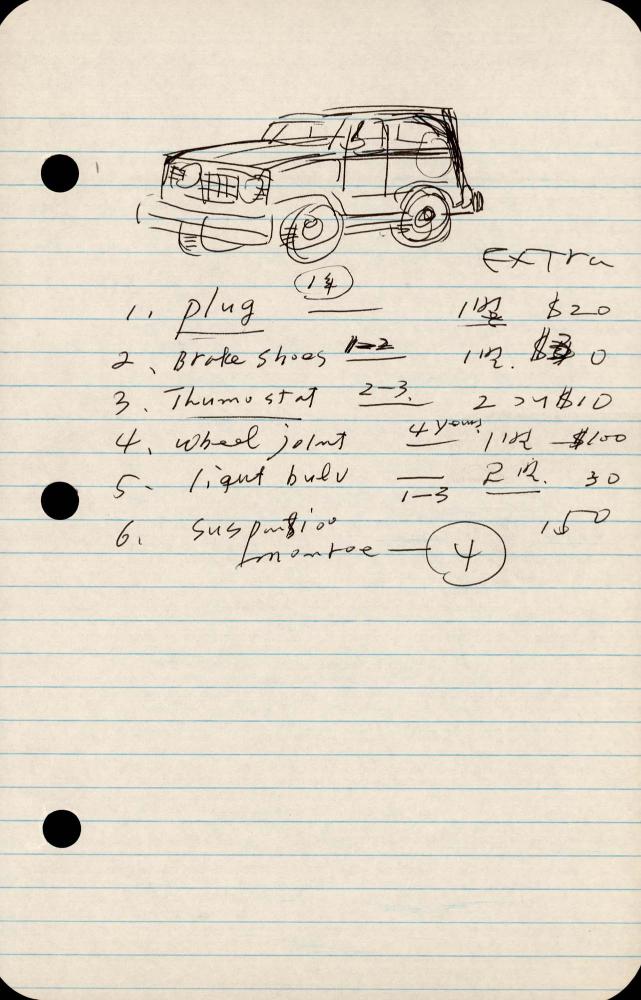 EXTra
1年
1. plug 1 $20
2. Brake shoes 1-2 1 0
3. Thumostat 2-3. 2 コ $10
4. wheel joint 4 years 1 $100
5. light bulv 1-3 2 30
6. suspension 150
monroe — 4